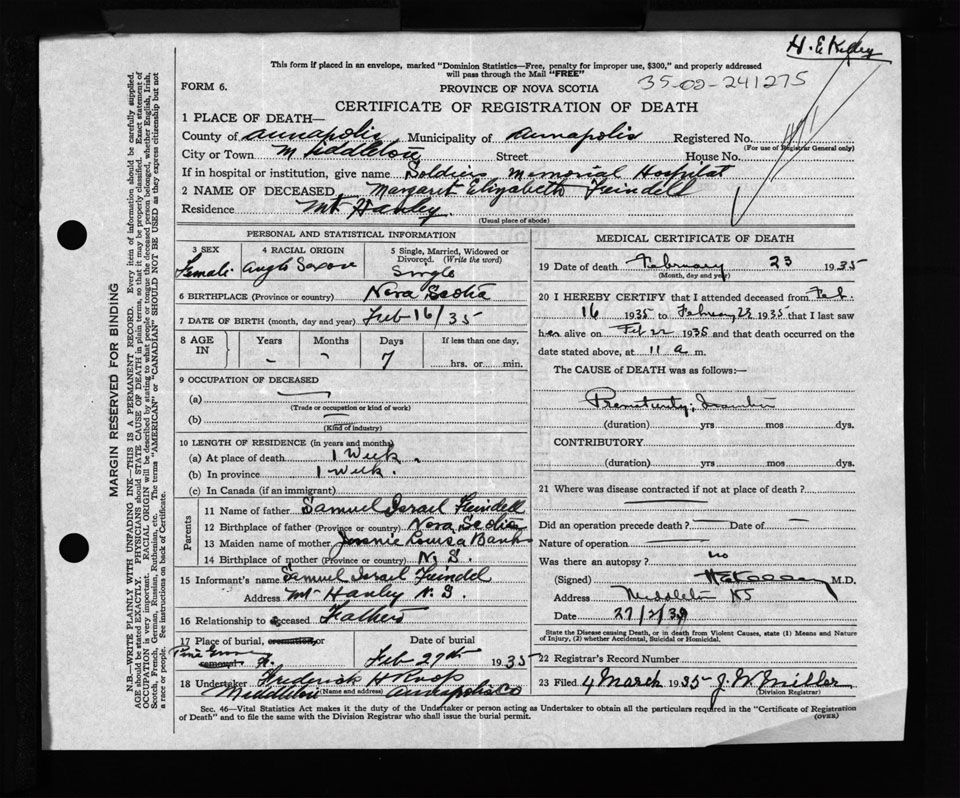 H. E. Kelley
This form if placed in an envelope, marked "Dominion Statistics—Free, penalty for improper use, $300," and properly addressed
will pass through the Mail "FREE"
35-02-241275
FORM 6.
PROVINCE OF NOVA SCOTIA
CERTIFICATE OF REGISTRATION OF DEATH
1 PLACE OF DEATH—
County of Annapolis Municipality of Annapolis Registered No.
(For use of Registrar General only)
City or Town Middleton Street House No.
If in hospital or institution, give name Soldiers Memorial Hospital
2 NAME OF DECEASED Margaret Elizabeth Feindell
Residence Mt Hanley.
(Usual place of abode)
PERSONAL AND STATISTICAL INFORMATION
3 SEX 4 RACIAL ORIGIN 5 Single, Married, Widowed or Divorced (Write the word)
Female. Anglo Saxon Single
6 BIRTHPLACE (Province or country) Nova Scotia
7 DATE OF BIRTH (month, day and year) Feb 16/35
8 AGE IN Years Months Days If less than one day,
- - 7 hrs. or min.
9 OCCUPATION OF DECEASED
(a)
(Trade or occupation or kind of work)
(b)
(Kind of industry)
10 LENGTH OF RESIDENCE (in years and months)
(a) At place of death 1 Week.
(b) In province 1 Week.
(c) In Canada (if an immigrant)
Parents
11 Name of father Samuel Israel Feindell
12 Birthplace of father (Province or country) Nova Scotia
13 Maiden name of mother Jennie Louisa Banks
14 Birthplace of mother (Province or country) N. S.
15 Informant's name Samuel Israel Feindel
Address Mt Hanley N. S.
16 Relationship to deceased Father
17 Place of burial, cremation, or removal Date of burial
Pine Grove Feb 27th 1935
18 Undertaker Frederick H
Middleton (Name and address) Annapolis Co
MEDICAL CERTIFICATE OF DEATH
19 Date of death February 23 1935
(Month, day and year)
20 I HEREBY CERTIFY that I attended deceased from Feb.
16 1935 to February 23 1935 that I last saw
her alive on Feb 22 1935 and that death occurred on the
date stated above, at 11 a m.
The CAUSE of DEATH was as follows:—
Prematurity;
(duration) yrs mos dys.
CONTRIBUTORY
(duration) yrs. mos dys.
21 Where was disease contracted if not at place of death?
Did an operation precede death? Date of
Nature of operation
Was there an autopsy? no
(Signed) M.D.
Address Middleton NS
Date 27/2/35
State the Disease causing Death, or in death from Violent Causes, state (1) Means and Nature
of Injury, (2) whether Accidental, Suicidal or Homicidal.
22 Registrar's Record Number
23 Filed 4 March 1935 J. W. Miller
(Division Registrar)
Sec. 46—Vital Statistics Act makes it the duty of the Undertaker or person acting as Undertaker to obtain all the particulars required in the "Certificate of Registration
of Death" and to file the same with the Division Registrar who shall issue the burial permit.
(OVER)
MARGIN RESERVED FOR BINDING
N.B.—WRITE PLAINLY WITH UNFADING INK—THIS IS A PERMANENT RECORD. Every item of information should be carefully supplied.
AGE should be stated EXACTLY. PHYSICIANS should STATE CAUSE OF DEATH in plain terms, so that it may be properly classified. Exact statement of
OCCUPATION is very important. RACIAL ORIGIN will be described by stating to what people or tongue the deceased person belonged, whether English, Irish,
Scotch, French, German, Russian, Ruthenian, etc. The terms "AMERICAN" or "CANADIAN" SHOULD NOT BE USED as they express citizenship but not
a race or people. See instructions on back of Certificate.